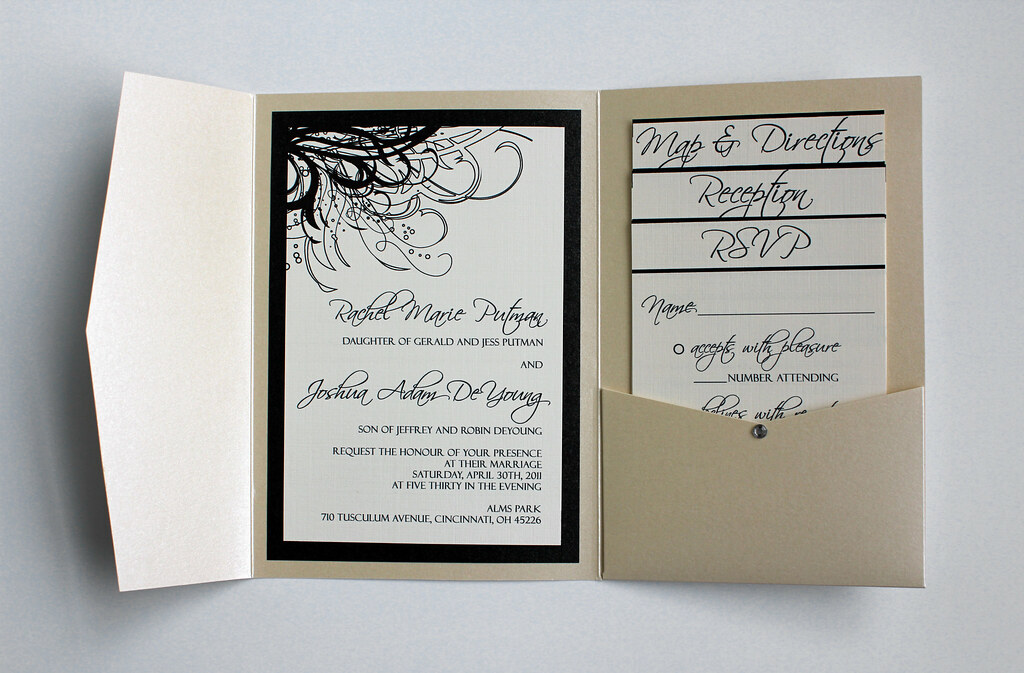 Rachel Marie Putman
DAUGHTER OF GERALD AND JESS PUTMAN
AND
Joshua Adam DeYoung
SON OF JEFFREY AND ROBIN DEYOUNG
REQUEST THE HONOUR OF YOUR PRESENCE
AT THEIR MARRIAGE
SATURDAY, APRIL 30TH, 2011
AT FIVE THIRTY IN THE EVENING
ALMS PARK
710 TUSCULUM AVENUE, CINCINNATI, OH 45226
Map & Directions
Reception
RSVP
Name
accepts with pleasure
NUMBER ATTENDING
with